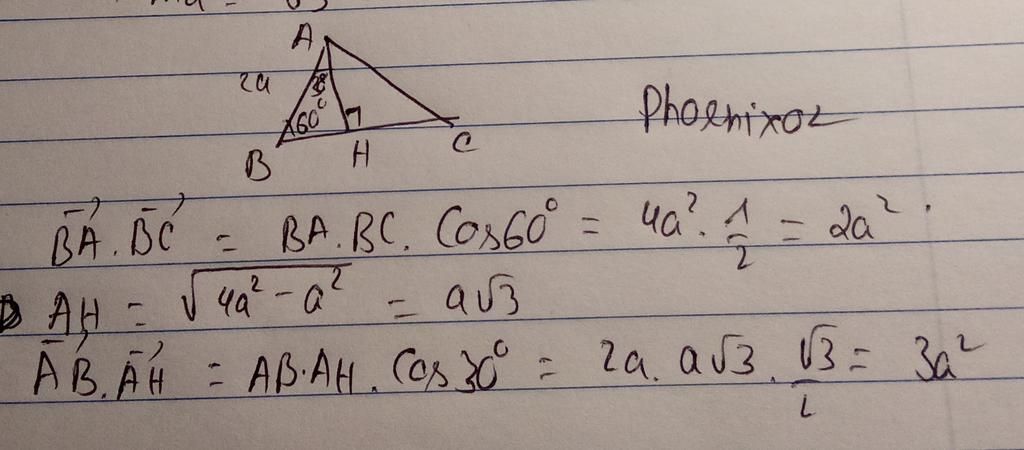 A
2a
60°
B
H
C
Phoenixoz
BA⃗ . BC⃗ = BA.BC. Cos60° = 4a² . 1/2 = 2a².
AH = √(4a² - a²) = a√3
AB⃗ . AH⃗ = AB.AH. Cos30° = 2a. a√3 . √3/2 = 3a²